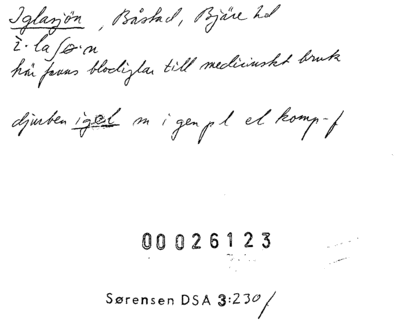 Iglasjön, Båstad, Bjäre hd
ī·laʃø·n
här fanns blodiglar till medicinskt bruk
djurben igel m i gen pl el komp-f
00026123
Sørensen DSA 3:230/